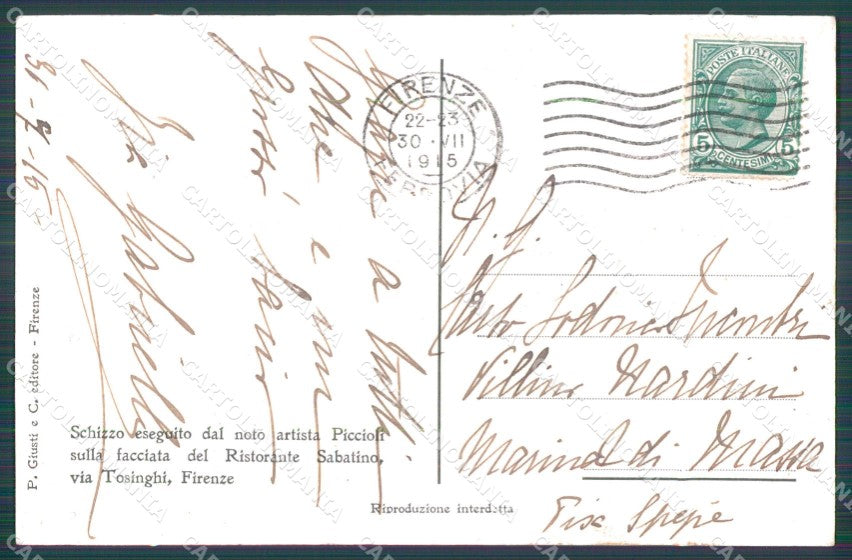 31-7-915
a tutti
e un
bacio
Gabriella
P. Giusti e C. editore - Firenze
Schizzo eseguito dal noto artista Piccioli
sulla facciata del Ristorante Sabatino,
via Tosinghi, Firenze
Riproduzione interdetta
FIRENZE
22-23
30·VII
1915
FERROVIA
POSTE ITALIANE
5 5
CENTESIMI
N. G.
Lodovico
Villino Nardini
Marina di Massa
CARTOLINOMANIA